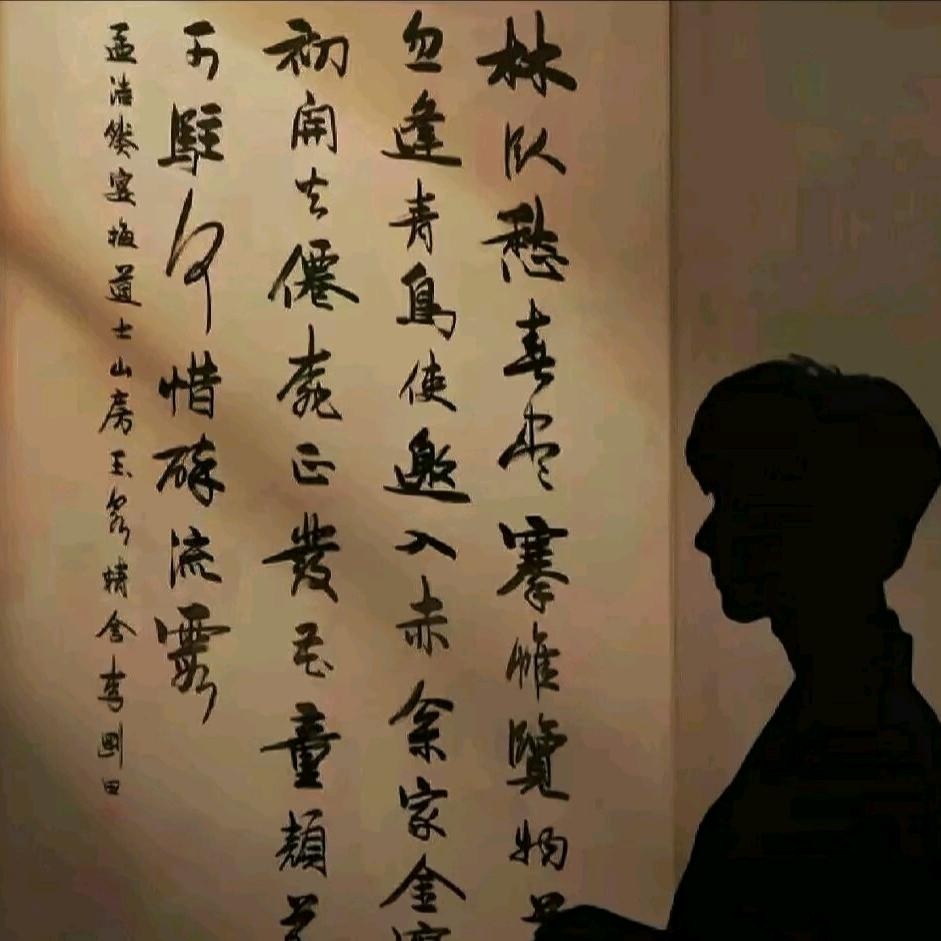 林臥愁春盡搴帷覽物
忽逢青鳥使邀入赤枀家金
初開火僊桃正發花童顏
可駐何惜醉流霞
孟浩然宴梅道士山房玉泉精舍李剛田